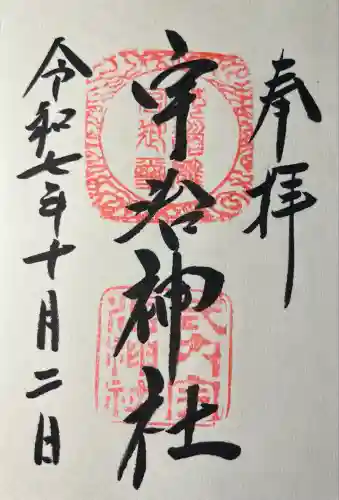 奉拝
宇治神社
令和七年十月二日